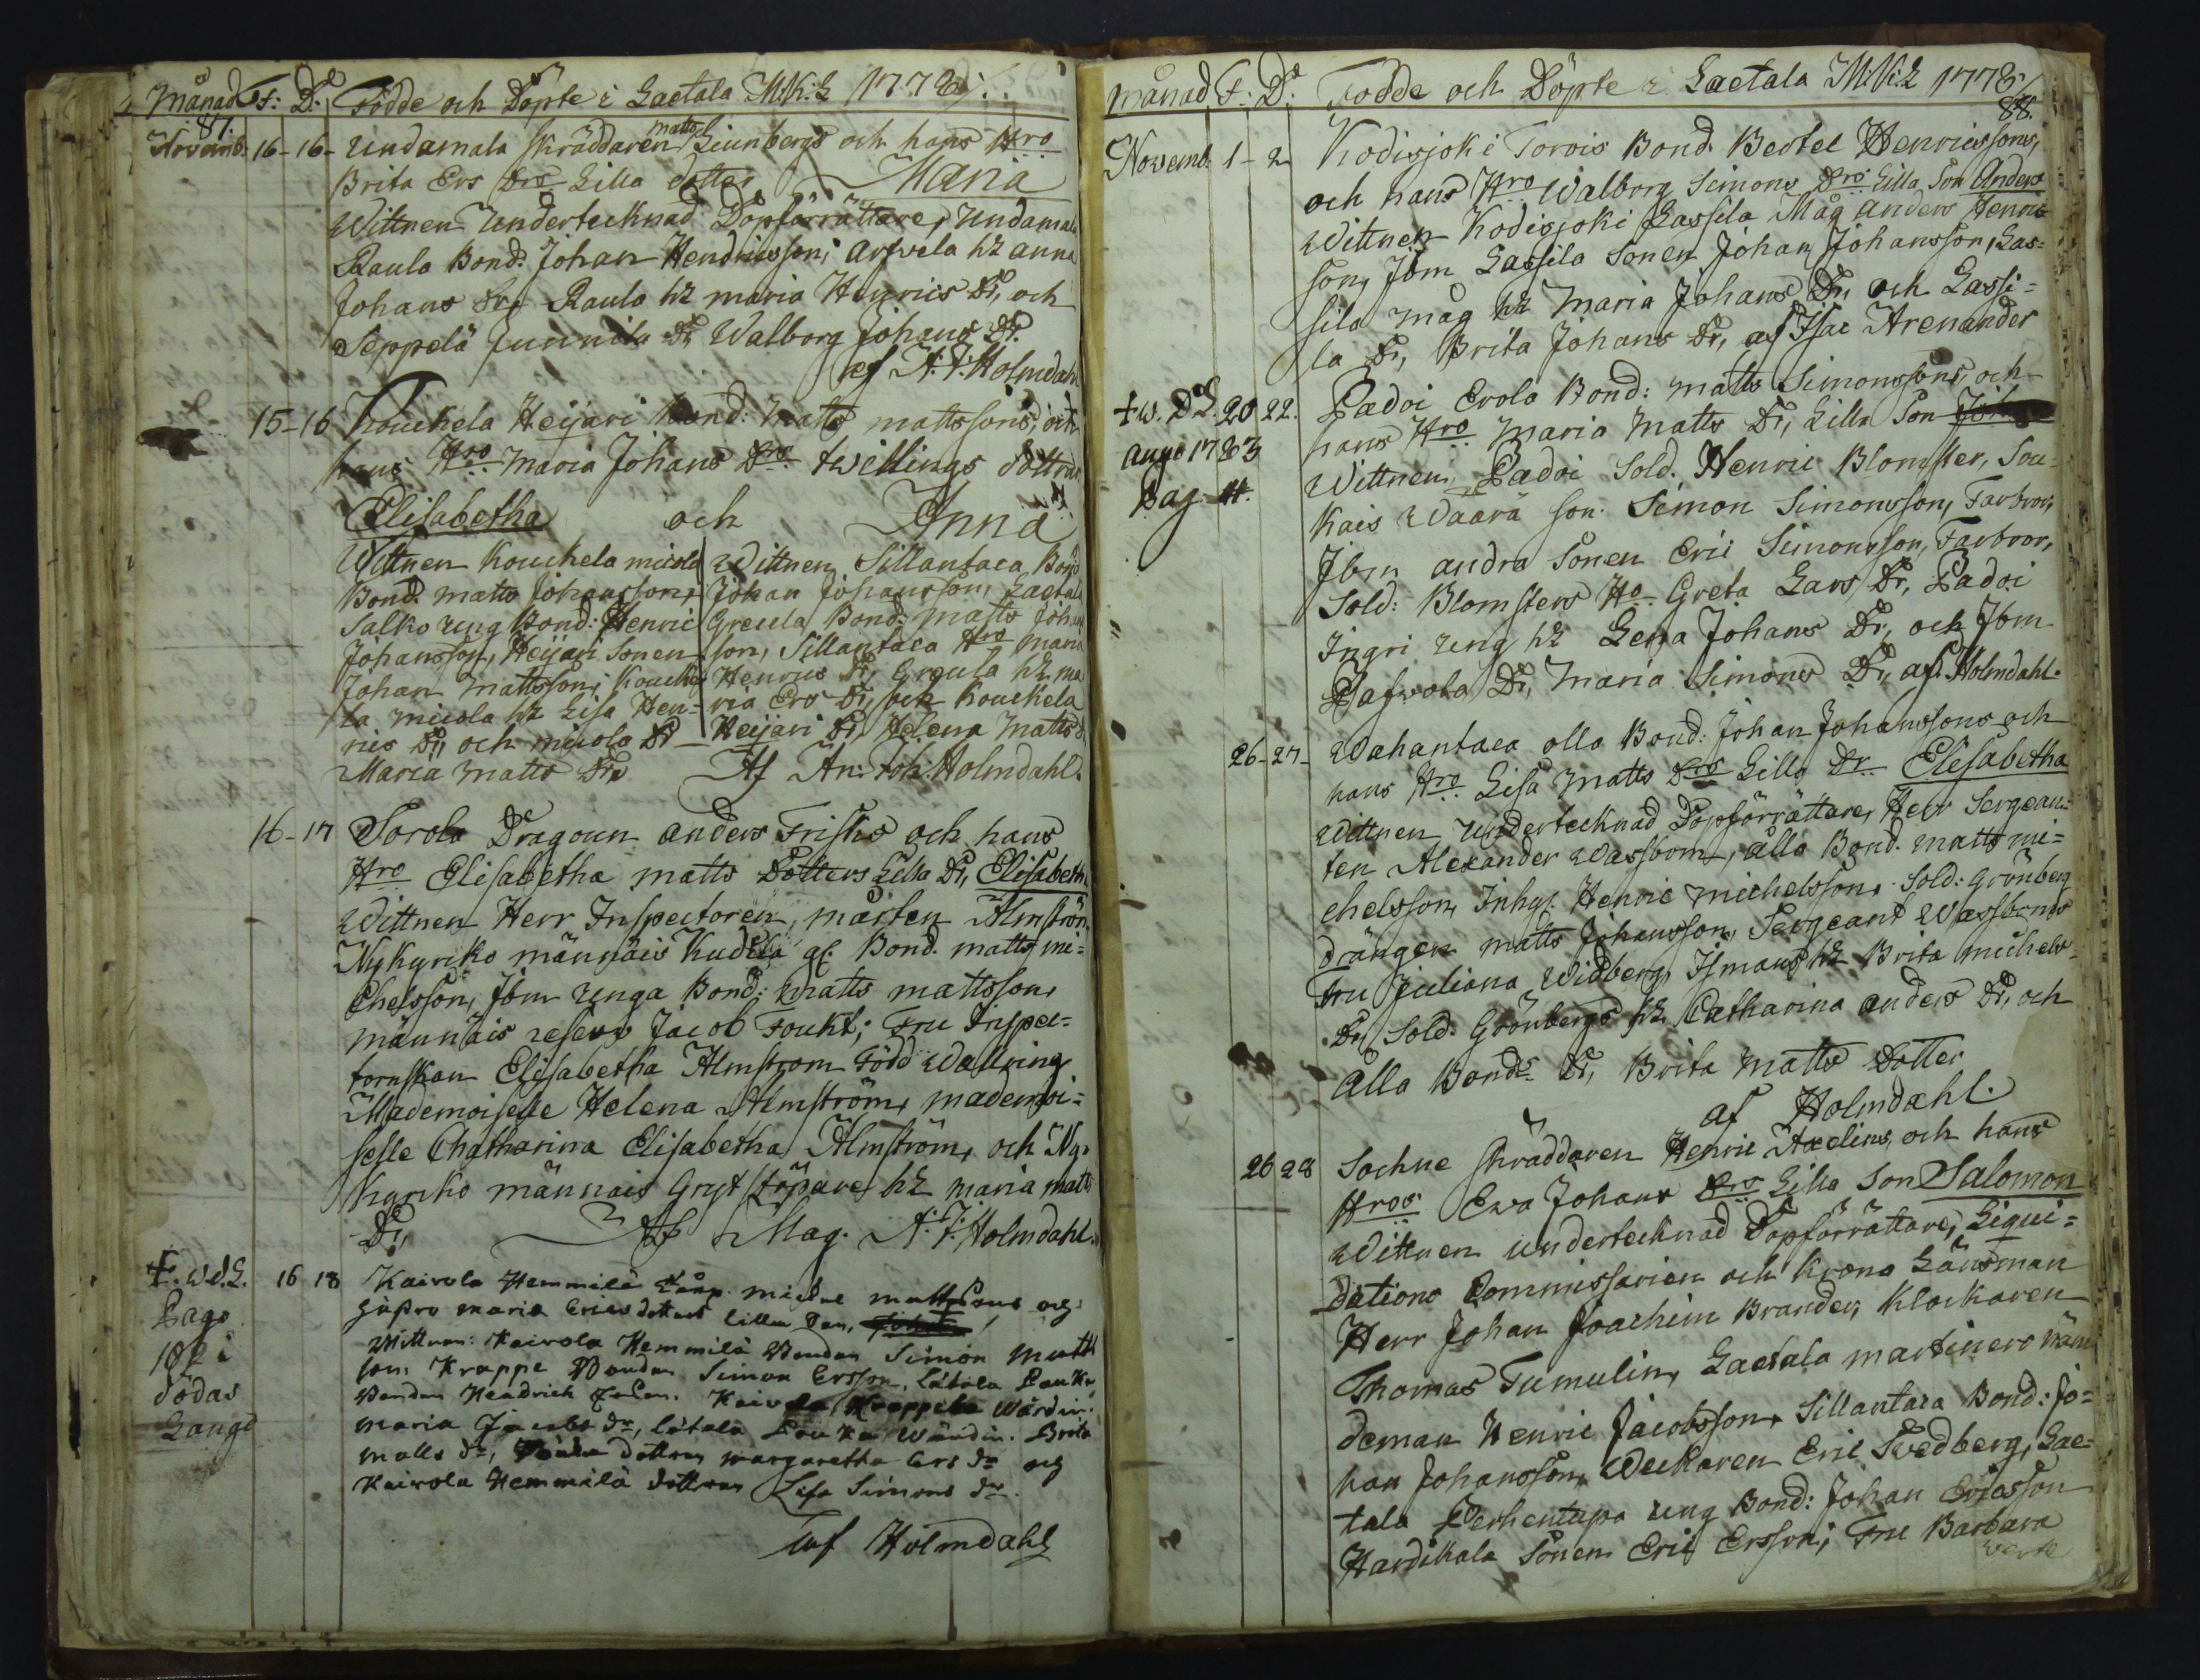 Månad F: D: Födde och Döpte i Laetala M:K:L 1778/.
87.
Novemb. 16-16- Undamala skräddaren matts Liunbergs och hans Hro
Brita Ers Drs Lilla dotter Maria
Wittnen Undertecknad Döpförrättare, Undamala
Raula Bond. Johan Hendricsson; Arfvela hL Anna
Johans Dr, Raula hL Maria Henrics Dr, och
Seppelä Junnila Dr Walborg Johans Dr.
af A:J:Holmdahl
15-16 Kouckela Heijari Bond: Matts Mattssons, och
hans Hro Maria Johans Drs twillings döttrar
Elisabetha och Anna
Wittnen Kouckela micola
Bond. Matts Johansson,
Salko ung Bond: Henric
Johansson, Heijari Sonen
Johan Mattsson; Koucke
la micola hL Lisa Hen-
rics Dr, och micola Dr
Maria Matts Dr,
Wittnen Sillantaca Bond
Johan Johansson, Laetala
Greula Bond: Matts Johans
son, Sillantaca Hro Maria
Henrics Dr, Greula hL ma
ria Ers Dr, och Kouckela
Heijari Dr, Helena Matts d.
Af An: Joh: Holmdahl.
16-17 Sorola Dragoun Anders Frisks och hans
Hro Elisabetha Matts Dotters Lilla Dr, Elisabeth
Wittnen Herr Inspectoren, Mårten Almström
Nykyrko männäis Kudila gl. Bond. Matts mi-
chelsson, Jbm Unga Bond: Matts Mattsson,
männäis reserv Jacob Foukt; Fru Inspec-
torskan Elisabetha Almstrom Född Wallring
Mademoiselle Helena Almström, mademoi-
selle Chatharina Elisabetha Almström, och Ny-
kyrko männais Grytstöpare hL Maria Matts
Dr, Af Mag. A:J:Holmdahl.
†. W.d.L. 16 18 Kairola Hemmilä Michne Mattssons och
Pago hustro Maria Erics dotters lilla Son, Johan
182 i Wittnen: Kairola Hemmilä Bonden Simon Matts
dödas son, Krappe Bonden Simon Ersson, Låtala Pauka
Längd Bonden Hendrich Kairola Krappila Wärdin.
Maria Jacobs dr, låtala Pauka Wärdin. Brita
Matts dr, dottren Margaretha Ers dr og
Kairola Hemmilä dottren Lisa Simons dr
af Holmdahl
Månad F: D: Födde och Döpte i Laetala M:K:L 1778/
88.
Novemb. 1-2 Kodisjoki Torvis Bond Bertel Henricssons,
och hans Hro Walborg Simons Drs Lilla Son Anders
Wittnen Kodisjoki Lassila Måg Anders Henric
son, Jbm Lassila Sonen Johan Johansson, Las-
sila måg hL Maria Johans Dr, och Lassi-
la Dr, Brita Johans Dr, af Isac Arenander
†W. DL. 20 22. Padoi Erola Bond: Matts Simonssons, och
Anno 1783 hans Hro Maria Matts Dr, Lilla Son Joh
Pag 11. Wittnen Padoi Sold. Henric Blomster, Sou-
kais Waara Son Simon Simonsson, Farbror,
Jbm andra Sonen Eric Simonsson, Farbror,
Sold: Blomsters Ho Greta Lars Dr, Padoi
Ingri ung hL Lena Johans Dr, och Jbm
Pafvola Dr, Maria Simons Dr, af Holmdahl.
26-27- Wahantaca olla Bond: Johan Johanssons och
hans Hro Lisa Matts Drs Lilla Dr Elisabetha
Wittnen undertecknad Döpförrättare, Herr Sergean-
ten Alexander Wassbom, Alla Bond. Matts mi-
chelsson, Inhys Henric michelsson, Sold: Grönberg
drängen Matts Johansson, Sergeant Wassboms
Fru Juliana Widberg, Ismans hL Brita michels-
Dr, Sold. Grönbergs hL Catharina Anders Dr, och
Alla Bonds Dr, Brita Matts Dotter
af Holmdahl.
26 28 Sochne skräddaren Henric Axelins, och hans
Hros Ewa Johans Drs Lilla Son Salomon
Wittnen undertecknad Döpförrättare, Liqui-
dations Commissarien och Krono Länsman
Herr Johan Joachim Brander, Klockaren
Thomas Tumulin, Laetala martinero näm
deman Henric Jacobsson, Sillantaca Bond: Jo-
han Johansson, Weckaren Eric Svedberg, Lae-
tala Perhentupa ung Bond: Johan Ericsson
Hardikala Sonen Eric Ersson; Fru Barbara